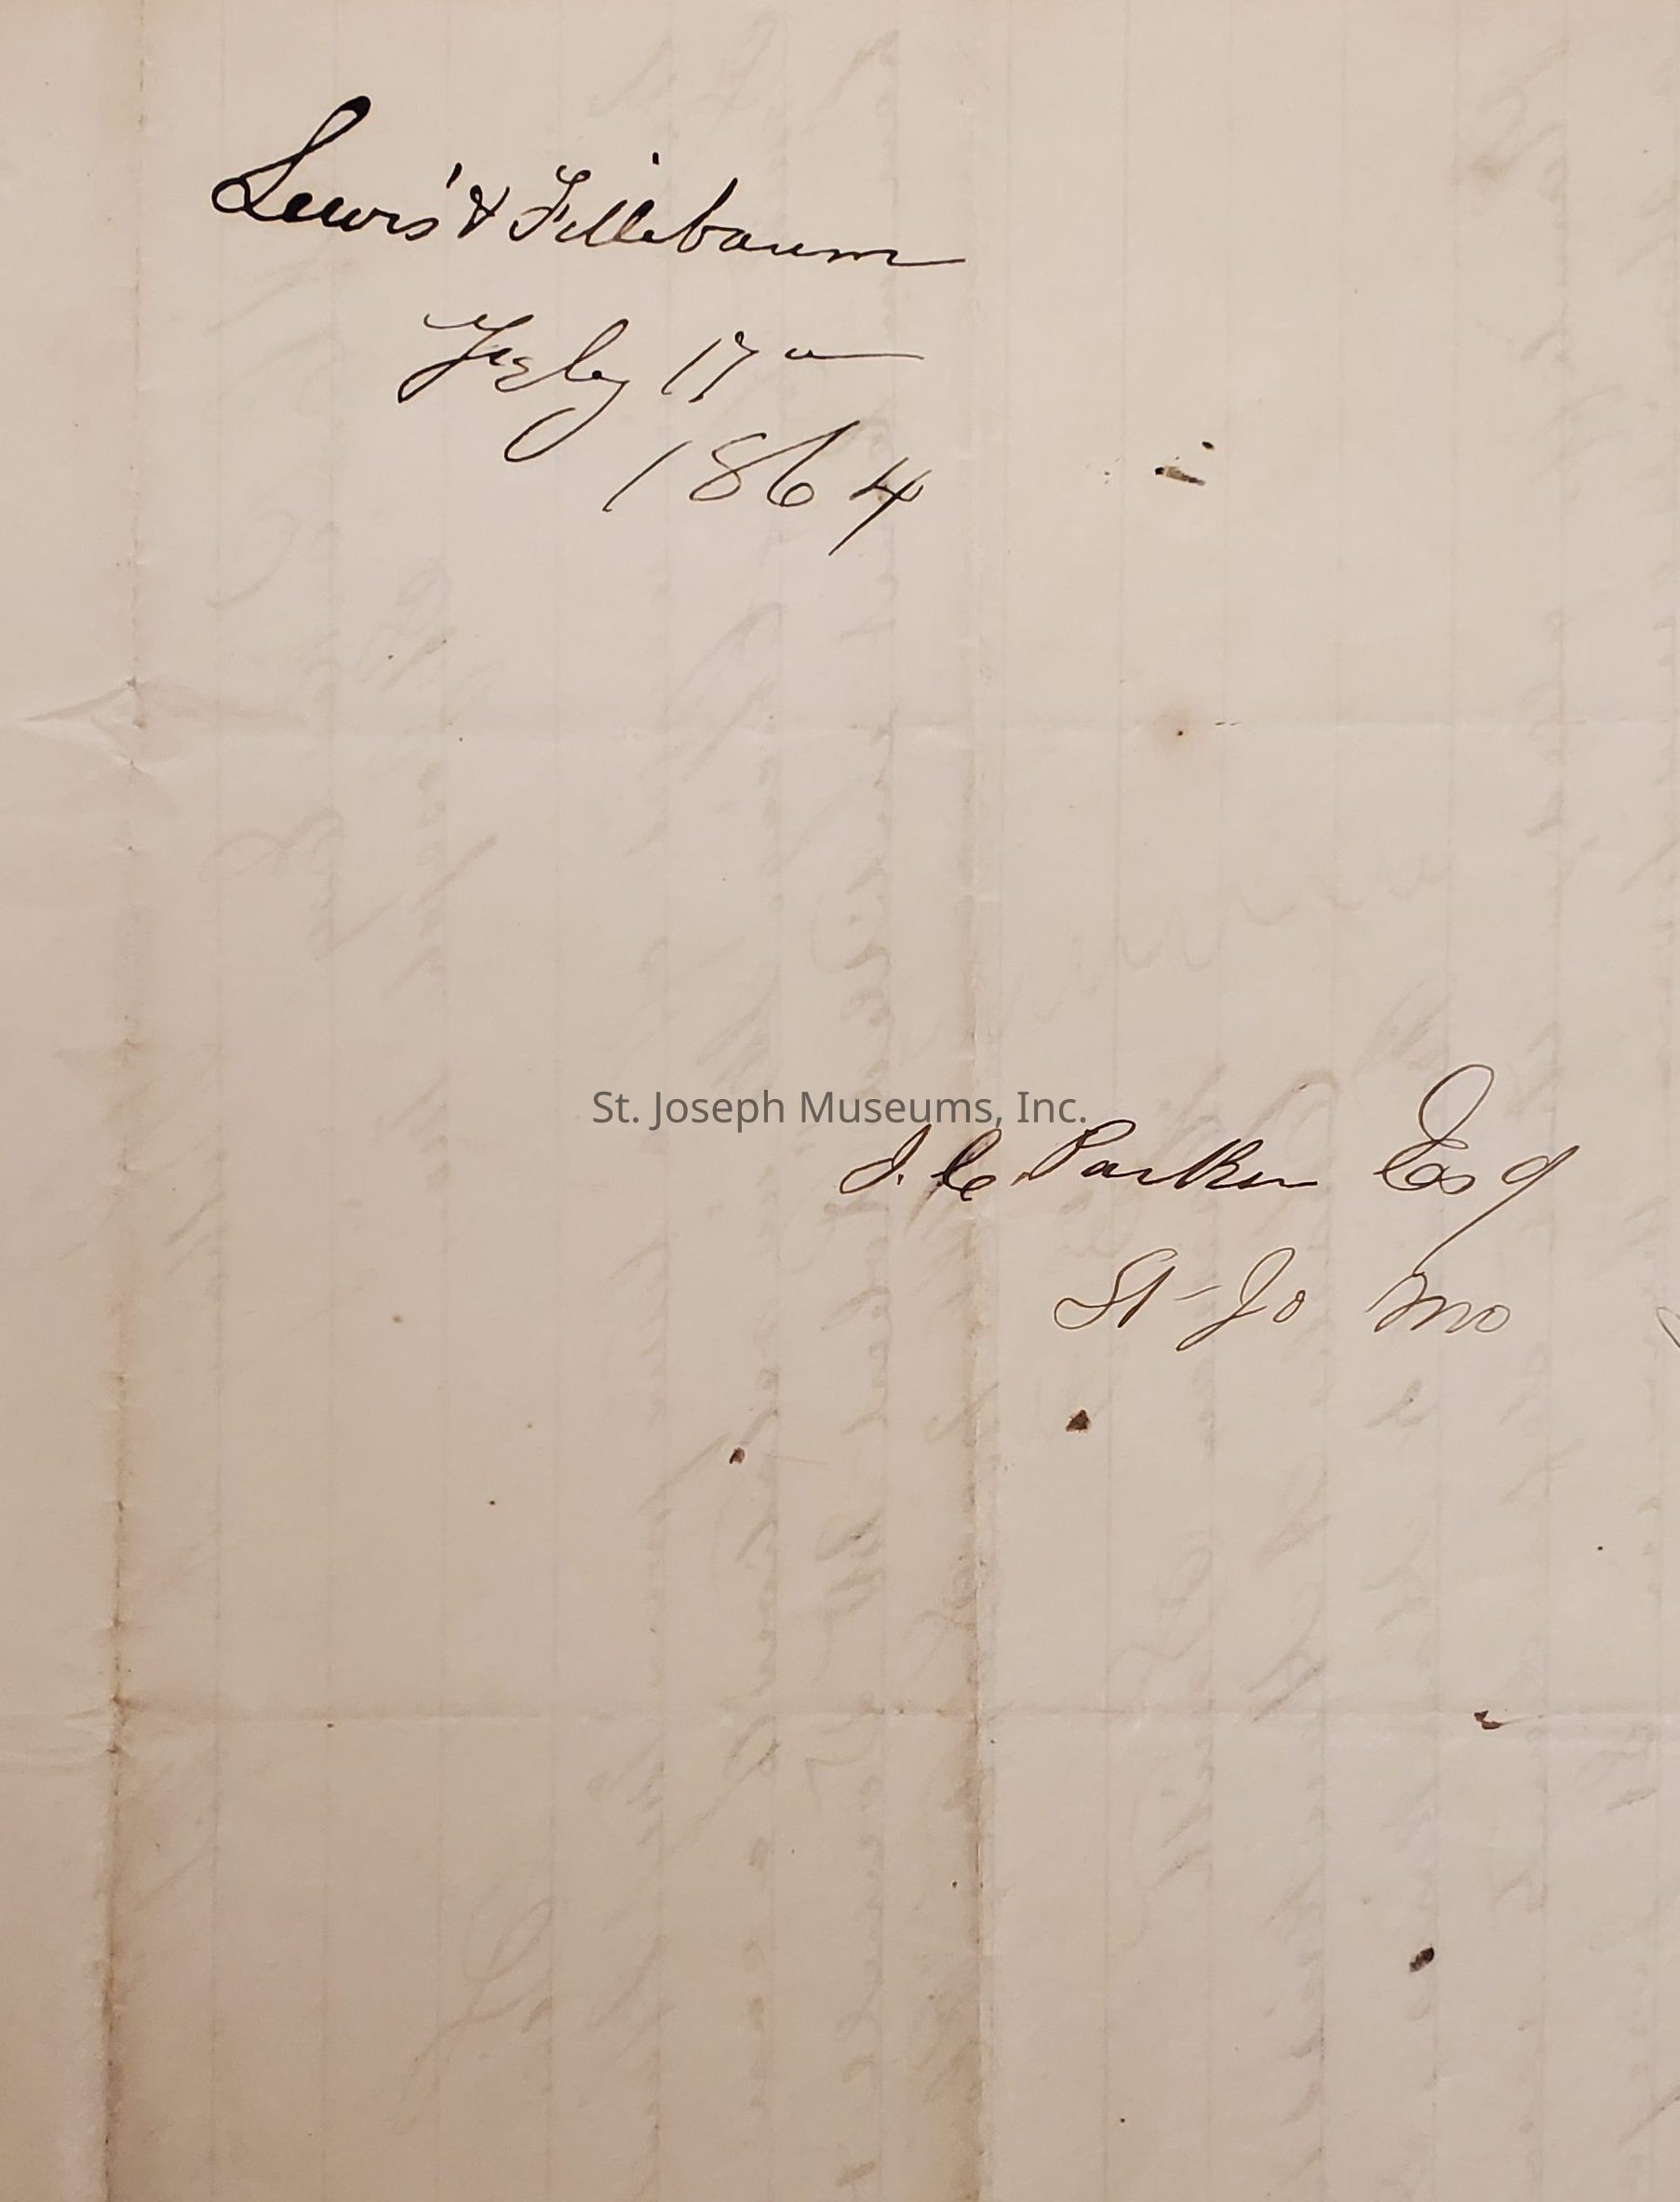 Lewis & Fillebaum
Feby 17
1864
St. Joseph Museums, Inc.
I. C. Parker Esq
St-Jo Mo